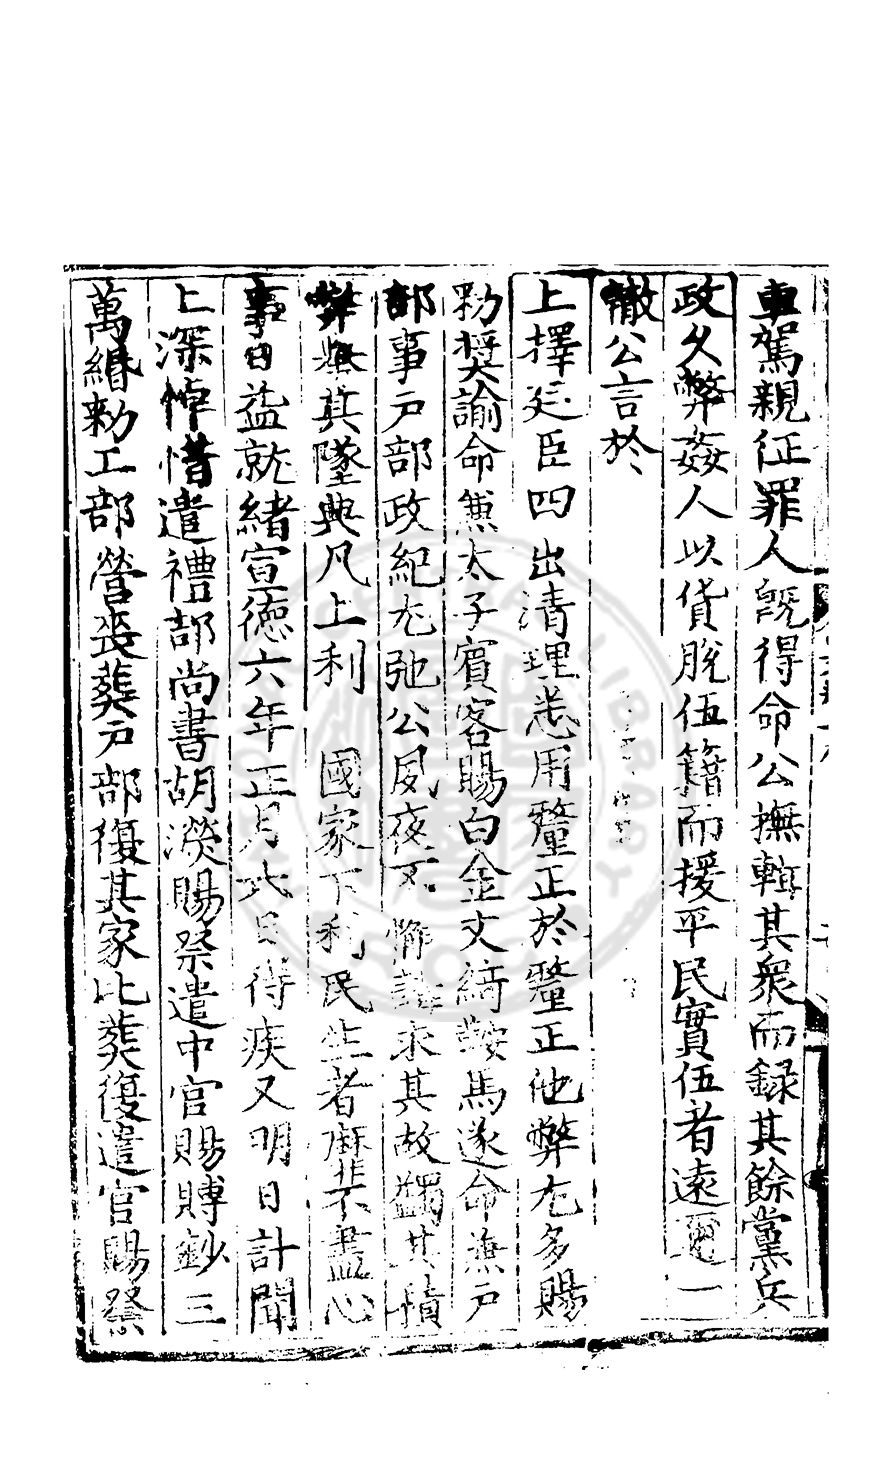 車駕親征罪人旣得命公撫輯其衆而録其餘黨兵
政久弊姦人以貨脫伍籍而援平民實伍者遠邇一
轍公言於
上擇廷臣四出清理悉用釐正於釐正他弊尤多賜
勑奬諭命兼太子賓客賜白金文綺鞍馬遂命兼戶
部事戶部政紀尤弛公夙夜不懈求其故蠲其積
弊舉其墜典凡上利國家下利民生者靡不盡心
事日益就緒宣德六年正月六日得疾又明日訃聞
上深悼惜遣禮部尚書胡濙賜祭遣中官賜賻鈔三
萬緡勑工部營喪葬戶部復其家比葬復遣官賜祭
CENTRAL LIBRARY